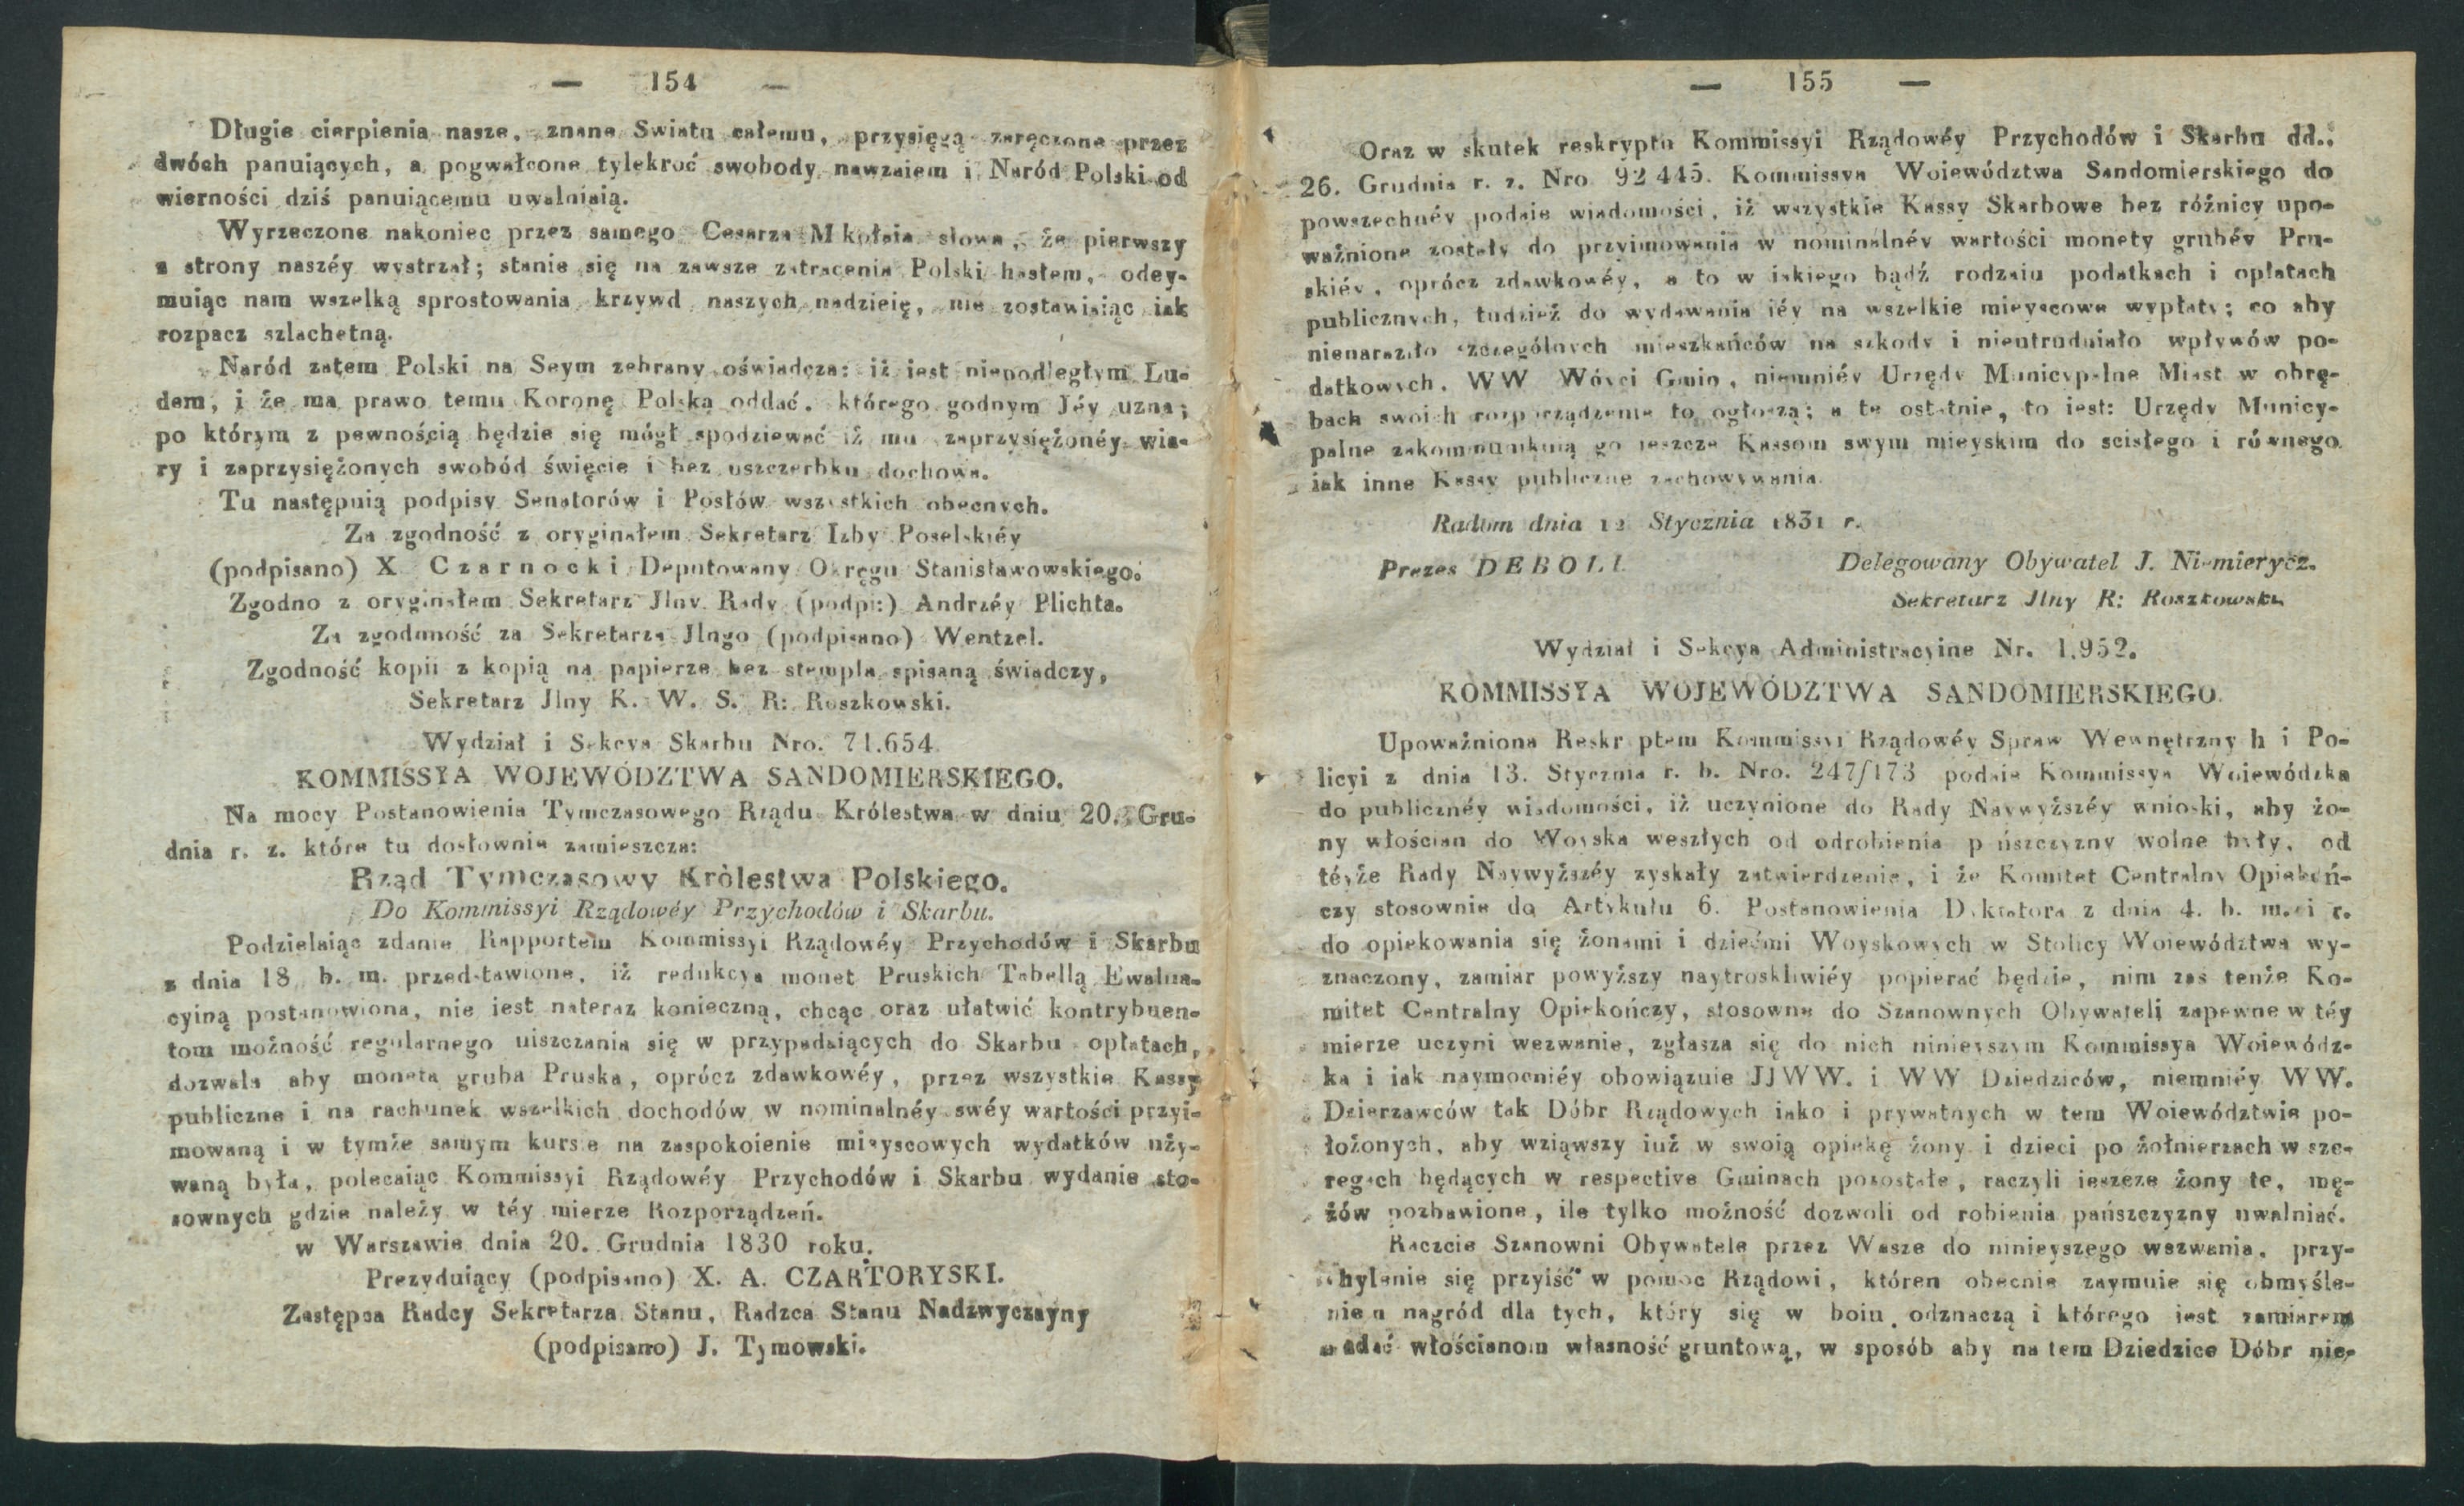 — 154 —
Długie cierpienia nasze, znane Swiatu całemu, przysięgą zaręczone przez
dwóch panuiących, a pogwałcone tylekroć swobody nawzaiem i Naród Polski od
wierności dziś panuiącemu uwalniaią.
Wyrzeczone nakoniec przez samego Cesarza Mikołaia słowa, że pierwszy
z strony naszéy wystrzał; stanie się na zawsze zatracenia Polski hasłem, odey-
muiąc nam wszelką sprostowania krzywd naszych nadzieię, nie zostawiaiąc iak
rozpacz szlachetną.
Naród zatem Polski na Seym zebrany oświadcza: iż iest niepodległym Lu-
dem, i że ma prawo temu Koronę Polską oddać, którego godnym Jéy uzna;
po którym z pewnością będzie się mógł spodziewać iż mu zaprzysiężonéy wia-
ry i zaprzysiężonych swobód święcie i bez uszczerbku dochowa.
Tu następuią podpisy Senatorów i Posłów wszystkich obecnych.
Za zgodność z oryginałem Sekretarz Izby Poselskiéy
(podpisano) X Czarnocki Deputowany Okręgu Stanisławowskiego.
Zgodno z oryginałem Sekretarz Jlny Rady (podpi:) Andrzéy Plichta.
Za zgodnność za Sekretarza Jlngo (podpisano) Wentzel.
Zgodność kopii z kopią na papierze bez stempla spisaną świadczy,
Sekretarz Jlny K. W. S. R: Roszkowski.
Wydział i Sekcya Skarbu Nro. 71.654
KOMMISSYA WOJEWÓDZTWA SANDOMIERSKIEGO.
Na mocy Postanowienia Tymczasowego Rządu Królestwa w dniu 20. Gru-
dnia r. z. które tu dosłownie zamieszcza:
Rząd Tymczasowy Królestwa Polskiego.
Do Kommissyi Rządowéy Przychodów i Skarbu.
Podzielaiąc zdanie Rapportem Kommissyi Rządowéy Przychodów i Skarbu
z dnia 18 b. m. przedstawione, iż redukcya monet Pruskich Tabellą Ewalua-
cyiną postanowiona, nie iest nateraz konieczną, chcąc oraz ułatwić kontrybuen-
tom możność regularnego uiszczania się w przypadaiących do Skarbu opłatach,
dozwala aby moneta gruba Pruska, oprócz zdawkowéy, przez wszystkie Kassy
publiczne i na rachunek wszelkich dochodów w nominalnéy swéy wartości przyi-
mowaną i w tymże samym kursie na zaspokoienie mieyscowych wydatków uży-
waną była, polecaiąc Kommissyi Rządowéy Przychodów i Skarbu wydanie sto-
sownych gdzie należy w téy mierze Rozporządzeń.
w Warszawie dnia 20. Grudnia 1830 roku.
Prezyduiący (podpisano) X. A. CZARTORYSKI.
Zastępca Radcy Sekretarza Stanu, Radzca Stanu Nadzwyczayny
(podpisano) J. Tymowski.
— 155 —
Oraz w skutek reskryptu Kommissyi Rządowéy Przychodów i Skarbu dd.:
26. Grudnia r. z. Nro 92445. Kommissya Woiewództwa Sandomierskiego do
powszechnéy podaie wiadomości, iż wszystkie Kassy Skarbowe bez różnicy upo-
ważnione zostały do przyimowania w nominalnéy wartości monety grubéy Pru-
skiéy, oprócz zdawkowéy, a to w iakiego bądź rodzaiu podatkach i opłatach
publicznych, tudzież do wydawania iéy na wszelkie mieyscowe wypłaty; co aby
nienaraziło szczególnych mieszkańców na szkody i nieutrudniało wpływów po-
datkowych, WW Wóyci Gmin, niemniéy Urzędy Municypalne Miast w obrę-
bach swoich rozporządzenie to ogłoszą; a te ostatnie, to iest: Urzędy Municy-
palne zakommunikuią go ieszcze Kassom swym mieyskim do scisłego i równego
iak inne Kassy publiczne zachowywania.
Radom dnia 12 Stycznia 1831 r.
Prezes DEBOLI
Delegowany Obywatel J. Niemierycz.
Sekretarz Jlny R: Roszkowski
Wydział i Sekcya Administracyine Nr. 1.952.
KOMMISSYA WOJEWÓDZTWA SANDOMIERSKIEGO.
Upoważniona Reskryptem Kommissyi Rządowéy Spraw Wewnętrznych i Po-
licyi z dnia 13. Stycznia r. b. Nro. 247/173 podaie Kommissya Woiewódzka
do publicznéy wiadomości, iż uczynione do Rady Naywyższéy wnioski, aby żo-
ny włościan do Woyska weszłych od odrobienia pańszczyzny wolne były, od
téyże Rady Naywyższéy zyskały zatwierdzenie, i że Komitet Centralny Opiekuń-
czy stosownie do Artykułu 6. Postanowienia Dyktatora z dnia 4. b. m. i r.
do opiekowania się żonami i dziećmi Woyskowych w Stolicy Woiewództwa wy-
znaczony, zamiar powyższy naytroskliwiéy popierać będzie, nim zas tenże Ko-
mitet Centralny Opiekończy, stosowne do Szanownych Obywateli zapewne w téy
mierze uczyni wezwanie, zgłasza się do nich ninieyszym Kommissya Woiewódz-
ka i iak naymocniéy obowiązuie JJWW. i WW Dziedziców, niemniéy WW.
Dzierzawców tak Dóbr Rządowych iako i prywatnych w tem Woiewództwie po-
łożonych, aby wziąwszy iuż w swoią opiekę żony i dzieci po żołnierzach w sze-
regach będących w respective Gminach pozostałe, raczyli ieszcze żony te, mę-
żów pozbawione, ile tylko możność dozwoli od robienia pańszczyzny uwalniać.
Raczcie Szanowni Obywatele przez Wasze do ninieyszego wezwania, przy-
chylenie się przyiść w pomoc Rządowi, któren obecnie zaymuie się obmyśle-
niem nagród dla tych, który się w boiu odznaczą i którego iest zamiarem
nadać włościanom własność gruntową, w sposób aby na tem Dziedzice Dóbr nie-